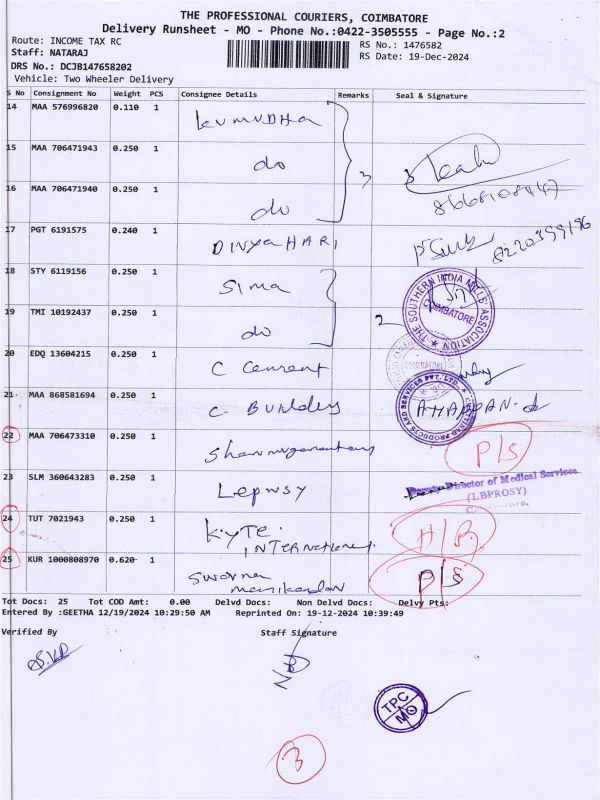 THE PROFESSIONAL COURIERS, COIMBATORE
Delivery Runsheet - MO - Phone No.:0422-3505555 - Page No.:2
Route: INCOME TAX RC
RS No.: 1476582
Staff: NATARAJ
RS Date: 19-Dec-2024
DRS No.: DCJB147658202
Vehicle: Two Wheeler Delivery
S No Consignment No Weight PCS Consignee Details Remarks Seal & Signature
14 MAA 576996820 0.110 1 KUMUDHA
15 MAA 706471943 0.250 1 do
16 MAA 706471940 0.250 1 do
3
17 PGT 6191575 0.240 1 DIVYA HARI
8220399196
18 STY 6119156 0.250 1 Sima
THE SOUTHERN INDIA MILLS' ASSOCIATION
COIMBATORE
19 TMI 10192437 0.250 1 do
2
20 EDQ 13604215 0.250 1 C Cement
21 MAA 868581694 0.250 1 C. Builders
22 MAA 706473310 0.250 1
P/S
23 SLM 360643283 0.250 1 Leprosy
Deputy Director of Medical Services
(LBPROSY)
24 TUT 7021943 0.250 1 Kyte
INTERnational
25 KUR 1000808970 0.620 1 Swarna
manikandan
P/S
Tot Docs: 25 Tot COD Amt: 0.00 Delvd Docs: Non Delvd Docs: Delvy Pts:
Entered By :GEETHA 12/19/2024 10:29:50 AM Reprinted On: 19-12-2024 10:39:49
Verified By Staff Signature
TPC
MO
3